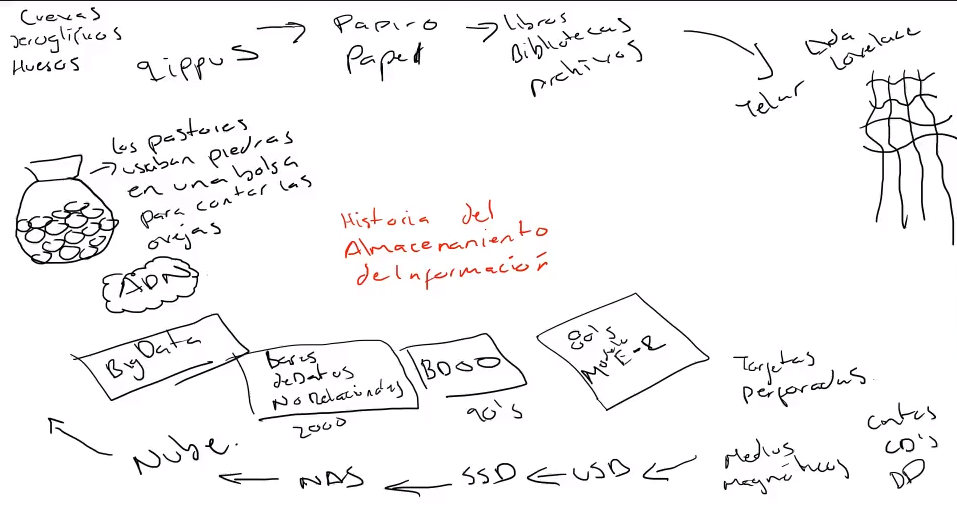 Cuevas
Jeroglíficos
Huesos
qippus
Papiro
Papel
Libros
Bibliotecas
Archivos
Telar
Ada
Lovelace
los pastores
usaban piedras
en una bolsa
para contar las
ovejas
ADN
Historia del
Almacenamiento
de Información
BigData
Bases
de Datos
No Relacionales
2000
BDOO
90's
80's
Modelo
E-R
Tarjetas
Perforadas.
Medios
Magnéticos
CD's
DD
USB
SSD
NAS
Nube.